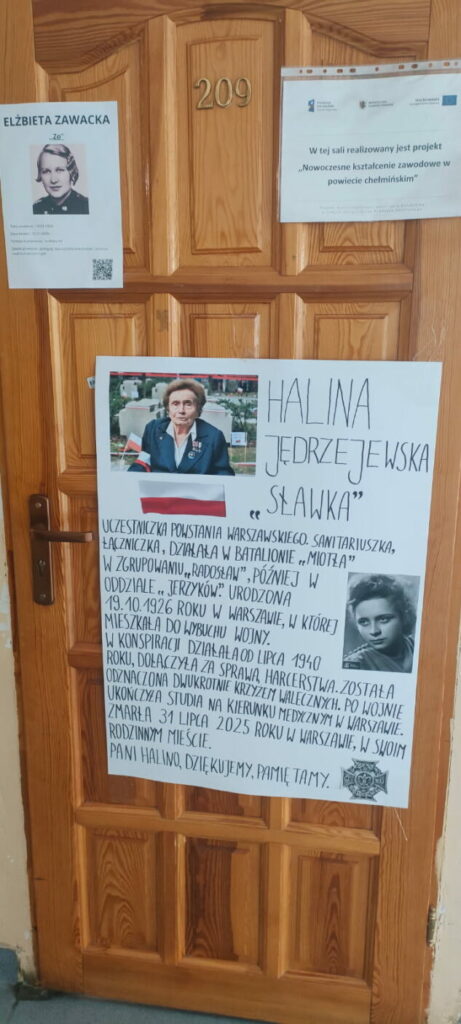 209
ELŻBIETA ZAWACKA
„Zo"
W tej sali realizowany jest projekt
„Nowoczesne kształcenie zawodowe w
powiecie chełmińskim"
HALINA
JĘDRZEJEWSKA
„SŁAWKA"
UCZESTNICZKA POWSTANIA WARSZAWSKIEGO. SANITARIUSZKA,
ŁĄCZNICZKA, DZIAŁAŁA W BATALIONIE „MIOTŁA"
W ZGRUPOWANIU „RADOSŁAW", PÓŹNIEJ W
ODDZIALE „JERZYKÓW". URODZONA
19.10.1926 ROKU W WARSZAWIE, W KTÓREJ
MIESZKAŁA DO WYBUCHU WOJNY.
W KONSPIRACJI DZIAŁAŁA OD LIPCA 1940
ROKU, DOŁĄCZYŁA ZA SPRAWĄ HARCERSTWA. ZOSTAŁA
ODZNACZONA DWUKROTNIE KRZYŻEM WALECZNYCH. PO WOJNIE
UKOŃCZYŁA STUDIA NA KIERUNKU MEDYCZNYM W WARSZAWIE.
ZMARŁA 31 LIPCA 2025 ROKU W WARSZAWIE, W SWOIM
RODZINNYM MIEŚCIE.
PANI HALINO, DZIĘKUJEMY, PAMIĘTAMY.